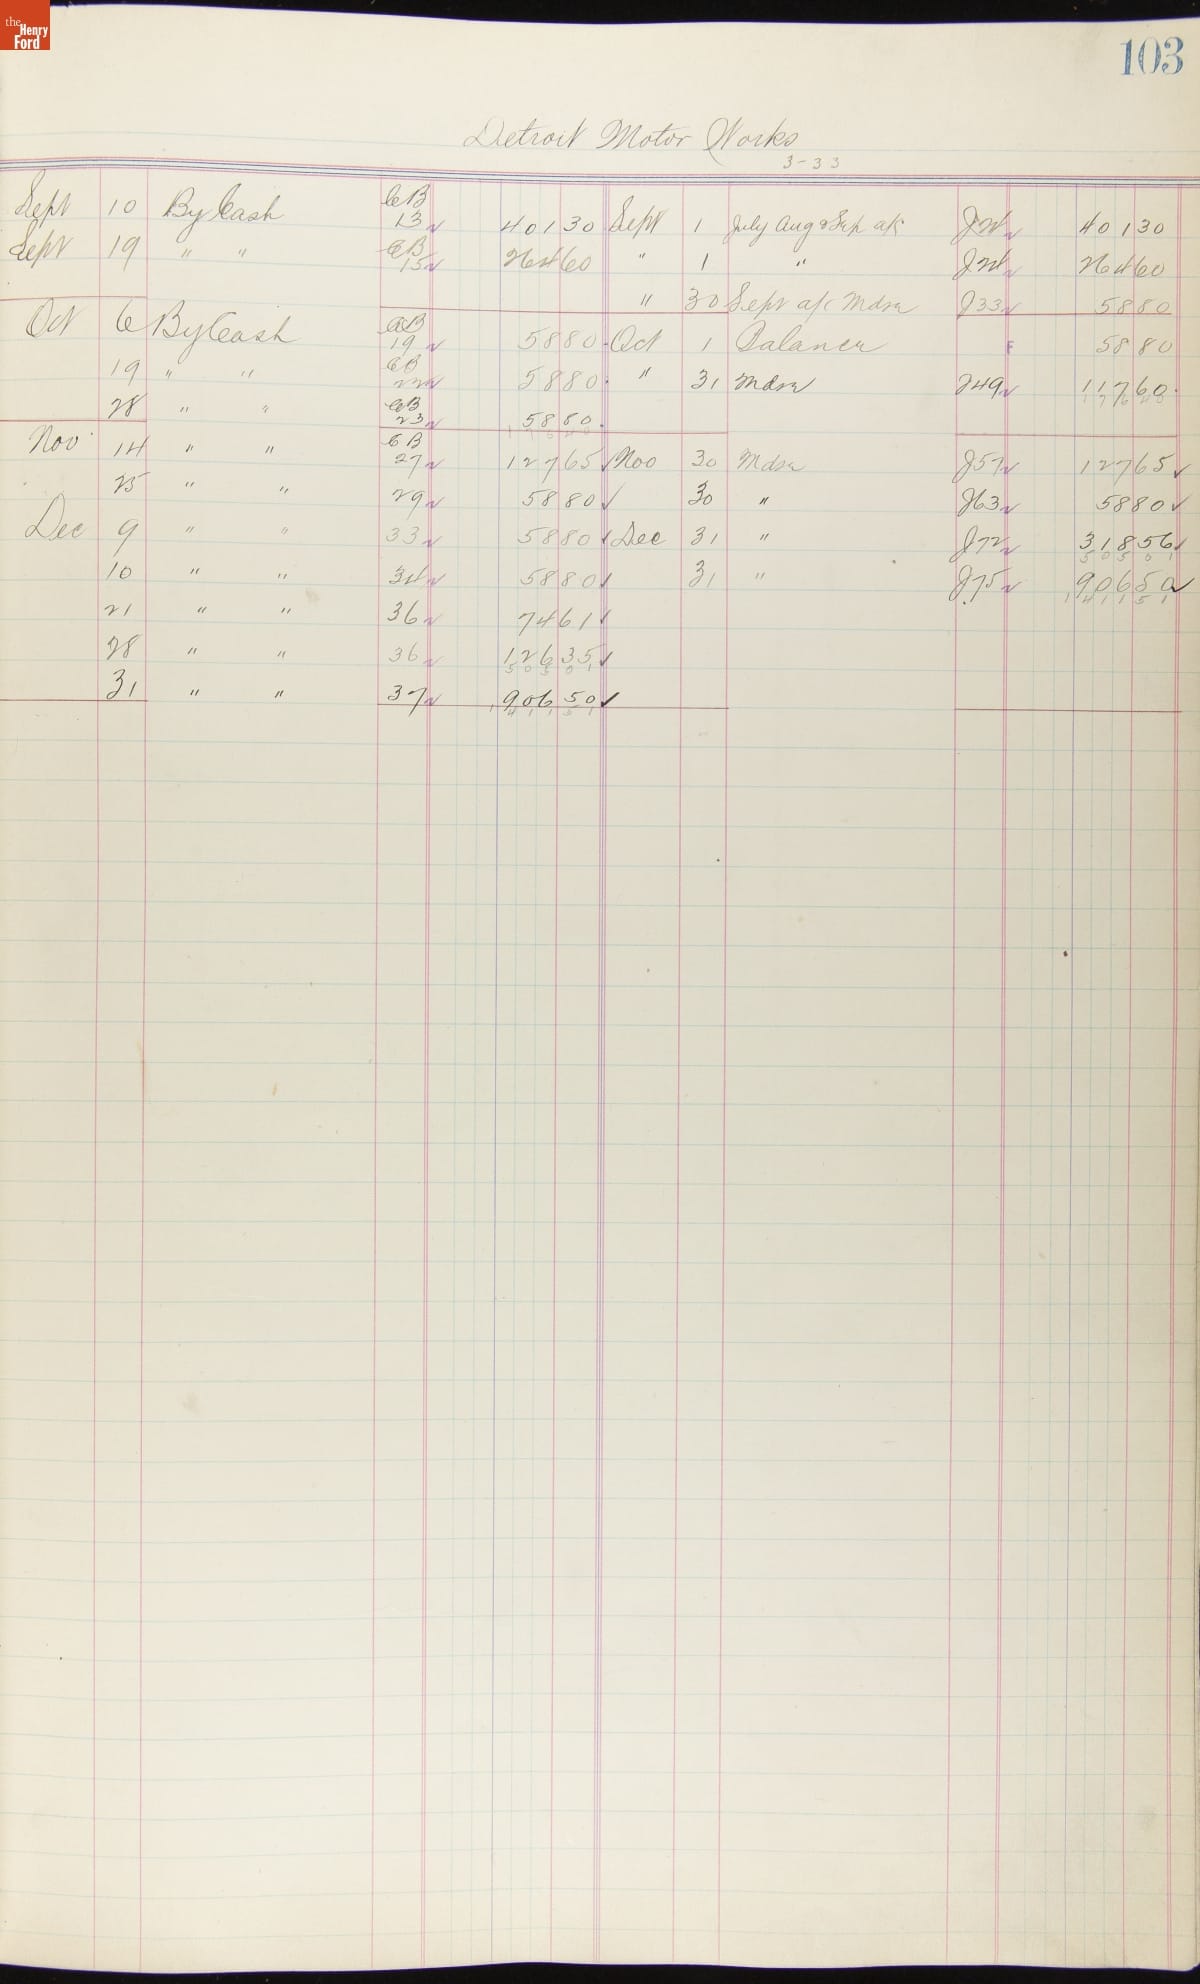 the Henry Ford
103
Detroit Motor Works
3-33
Sept 10 By Cash CB 13 401 30 Sept 1 July Aug & Sep a/c J24 401 30
Sept 19 " " CB 15 264 60 " 1 " J24 264 60
" 30 Sept a/c Mdse J33 58 80
Oct 6 By Cash CB 19 58 80 Oct 1 Balance F 58 80
19 " " CB 22 58 80 " 31 Mdse J49 117 60
176 40
28 " " CB 23 58 80
176 40
Nov 14 " " CB 27 127 65 Nov 30 Mdse J57 127 65
25 " " 29 58 80 30 " J63 58 80
Dec 9 " " 33 58 80 Dec 31 " J72 318 56
505 01
10 " " 34 58 80 31 " J75 906 50
1411 51
21 " " 36 74 61
28 " " 36 126 35
505 01
31 " " 37 906 50
1411 51